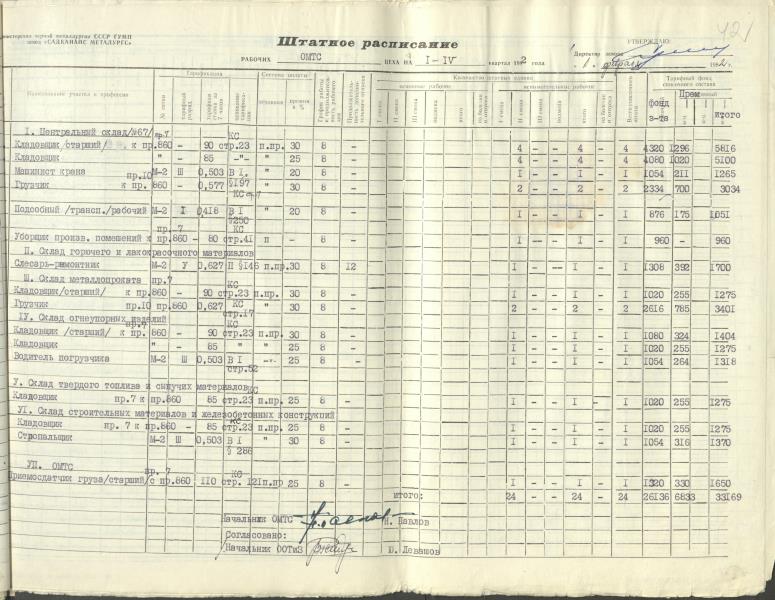 421
Министерство черной металлургии СССР ГУМП
завод «САДКАНАЙС МЕТАЛУРГС»
УТВЕРЖДАЮ:
Штатное расписание
Директор завода
РАБОЧИХ ОМТС ЦЕХА НА I-IV квартал 1982 года
" 1 . февраля 1982 г.
Наименование участка и профессии
Тарификация
Система оплаты
Количество штатных единиц
основные рабочие
вспомогательные рабочие
Тарифный фонд списочного состава
фонд з-та
Прем
итого
I. Центральный склад/№67/ пр.7 КС
Кладовщик/старший/ к пр.860 - 90 стр.23 п.пр. 30 8 - 4 - - 4 - 4 4320 1296 5816
Кладовщик " - 85 -"- " 25 8 - 4 - - 4 - 4 4080 1020 5100
Машинист крана М-2 Ш 0,503 В I. " 20 8 - I - - I - I 1054 211 1265
Грузчик пр.10 к пр.860 - 0,577 §197 КС " 30 8 - 2 - - 2 - 2 2334 700 3034
Подсобный /трансп./рабочий М-2 I 0,418 В I §250 " 20 8 - I - - I - I 876 175 1051
пр. 7 КС
Уборщик произв. помещений к пр.860 - 80 стр.41 п - 8 - I - - I - I 960 - 960
П. Склад горючего и лакокрасочного материалов
Слесарь-ремонтник М-2 У 0,627 П §146 п.пр. 30 8 12 I - - I - I 1308 392 1700
Ш. Склад металлопроката пр.7 КС
Кладовщик/старший/ к пр.860 - 90 стр.23 п.пр. 30 8 - I - - I - I 1020 255 1275
Грузчик пр.10 пр.860 - 0,627 КС стр.17 " 30 8 - 2 - - 2 - 2 2616 785 3401
IУ. Склад огнеупорных изделий
пр.7 КС
Кладовщик /старший/ к пр. 860 - 90 стр.23 п.пр. 30 8 - I - - I - I 1080 324 1404
Кладовщик " - 85 " " 25 8 - I - - I - I 1020 255 1275
Водитель погрузчика М-2 Ш 0,503 В I стр.52 -"- 25 8 - I - - I - I 1054 264 1318
У. Склад твердого топлива и сыпучих материалов КС
Кладовщик пр.7 к пр.860 - 85 стр.23 п.пр. 25 8 - I - - I - I 1020 255 1275
УI. Склад строительных материалов и железобетонных конструкций
Кладовщик пр. 7 к пр.860 - 85 стр.23 п.пр. 25 8 - I - - I - I 1020 255 1275
Стропальщик М-2 Ш 0,503 В I § 286 " 30 8 - I - - I - I 1054 316 1370
УП. ОМТС
пр. 7 КС
Приемосдатчик груза/старший/с пр.860 110 стр. 121 п.пр 25 8 - I - - I - I 1320 330 1650
итого: 24 - - 24 - 24 26136 6833 33169
Начальник ОМТС Н. Павлов
Согласовано:
Начальник ООТиЗ Ю. Левашов